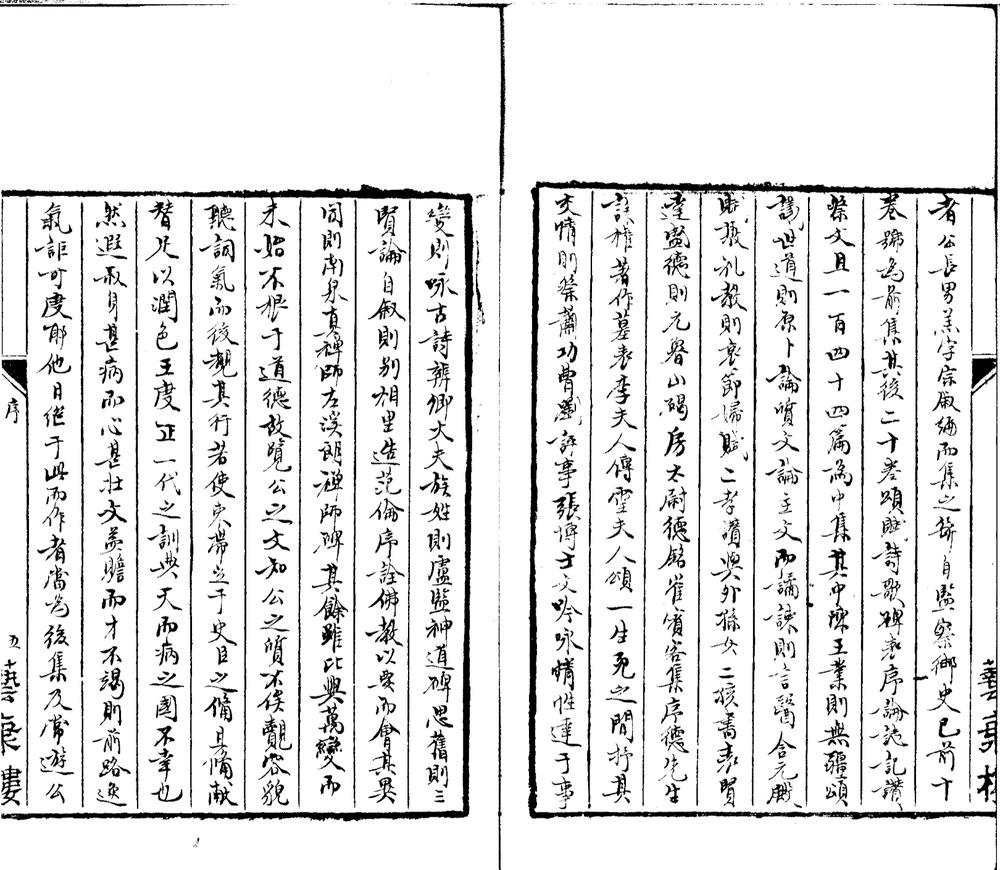 者公長男羔字宗緒編而集之斷自監察御史已前十
卷號為前集其後二十卷頌賦詩歌碑表序論誌記讚
祭文凡一百四十四篇為中集其中陳王業則無疆頌
議世道則原卜論質文論主文而譎諫則言醫含元殿
賦敦礼教則哀節婦賦二孝讚與外孫女二孩書表賢
達盛德則元魯山碣房太尉德銘崔賓客集序德先生
誄權著作墓表李夫人傳靈夫人頌一生死之間抒其
交情則祭蕭功曹劉評事張博士文吟咏情性達于事
變則咏古詩辨卿大夫族姓則盧監神道碑思舊則三
賢論自叙則别相里造范倫序詮佛教以要而會其異
同則南泉真禅師左溪朗禅師碑其餘雖比興萬變而
未始不根于道德故覽公之文知公之質不俟覿容貌
聽詞氣而後觀其行若使束帶立于史臣之備且備献
替足以潤色王度正一代之訓典天而病之國不幸也
然遐叔身甚病而心甚壯文益贍而才不竭則前路逶
氣詎可度耶他日继于此而作者當為後集及常遊公
序
五十
藝棄樓